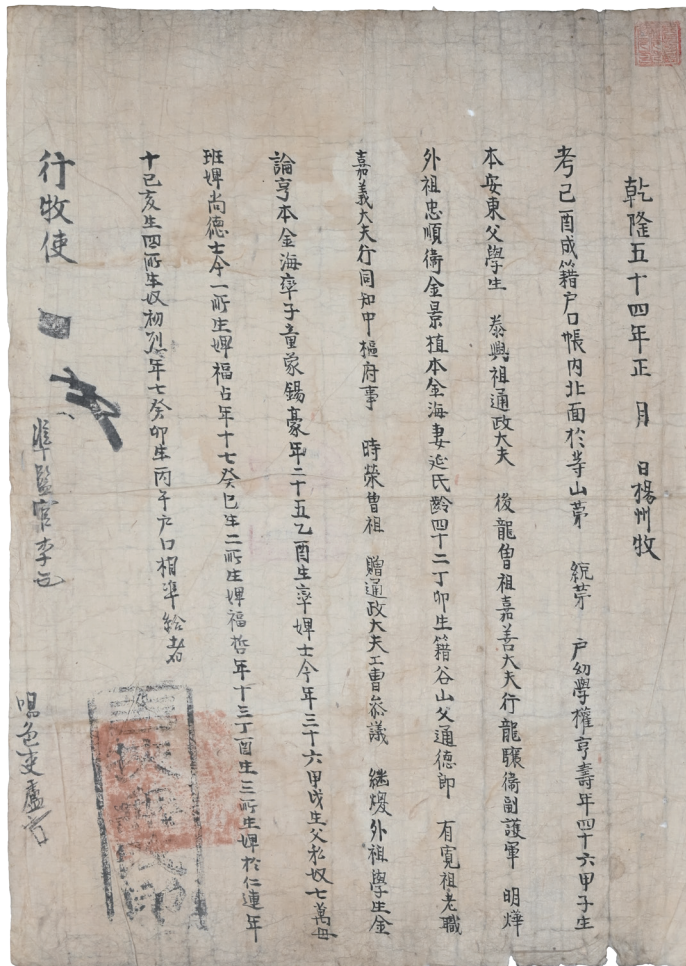 乾隆五十四年正 月 日楊州牧
考己酉成籍戶口帳內北面於等山第 統第 戶幼學權亨壽年四十六甲子生
本安東父學生 泰興祖通政大夫 後龍曾祖嘉善大夫行龍驤衛副護軍 明燁
外祖忠順衛金景植本金海妻延氏齡四十二丁卯生籍谷山父通德郎 有寬祖老職
嘉義大夫行同知中樞府事 時榮曾祖 贈通政大夫工曹參議 繼 外祖學生金
論亨本金海率子童蒙錫豪年二十五乙酉生率婢士今年三十六甲戌生父私奴七萬母
班婢尚德士今一所生婢福占年十七癸巳生二所生婢福哲年十三丁酉生三所生婢於仁連年
十己亥生四所生奴初烈年七癸卯生丙午戶口相準給者
行牧使
準監官李
唱色吏盧